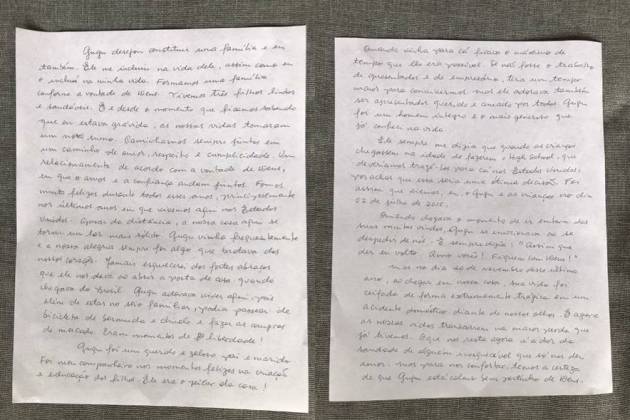 Gugu desejou constituir uma família e eu
também. Ele me incluiu na vida dele, assim como eu
o incluí na minha vida. Formamos uma família
conforme a vontade de Deus. Tivemos três filhos lindos
e saudáveis. E desde o momento que ficamos sabendo
que eu estava grávida, as nossas vidas tomaram
um novo rumo. Caminhamos sempre juntos em
um caminho de amor, respeito e cumplicidade. Um
relacionamento de acordo com a vontade de Deus,
em que o amor e a confiança andam juntos. Fomos
muito felizes durante todos esses anos, principalmente
nos últimos anos em que vivemos aqui nos Estados
Unidos. Apesar da distância, a nossa casa aqui se
tornou um lar mais sólido. Gugu vinha frequentemente
e a nossa alegria sempre foi algo que brotava dos
nossos corações. Jamais esquecerei dos fortes abraços
que ele nos dava ao abrir a porta de casa quando
chegava do Brasil. Gugu adorava viver aqui, pois
além de estar no seio familiar, podia passear de
bicicleta de bermuda e chinelo e fazer as compras
de mercado. Eram momentos de liberdade!
Gugu foi um querido e zeloso pai e marido.
Foi meu companheiro nos momentos felizes na criação
e educação dos filhos. Ele era o pilar da casa!
Quando vinha para cá ficava o máximo de
tempo que lhe era possível. Se não fosse o trabalho
de apresentador e de empresário, teria um tempo
maior para convivermos, mas ele adorava também
ser apresentador querido e amado por todos. Gugu
foi um homem íntegro e o mais generoso que
já conheci na vida.
Ele sempre me dizia que quando as crianças
chegassem na idade de fazerem High School, que
deveríamos trazê-los para cá nos Estados Unidos,
pois achava que essa seria uma ótima decisão. Foi
assim que viemos, eu, o Gugu e as crianças no dia
02 de julho de 2015.
Quando chegava o momento de ir embora das
suas muitas vindas, Gugu se emocionava ao se
despedir de nós. E sempre dizia: "Assim que
der eu volto. Amo vocês! Fiquem com Deus!"
Mas no dia 20 de novembro desse último
ano, ao chegar em nossa casa, sua vida foi
ceifada de forma extremamente trágica em um
acidente doméstico diante de nossos olhos. E agora
as nossas vidas transcorrem na maior perda que
já tivemos. O que nos resta agora é a dor da
saudade de alguém inesquecível que só nos deu
amor. Mas para nos confortar, temos a certeza
de que Gugu está bem pertinho de Deus.